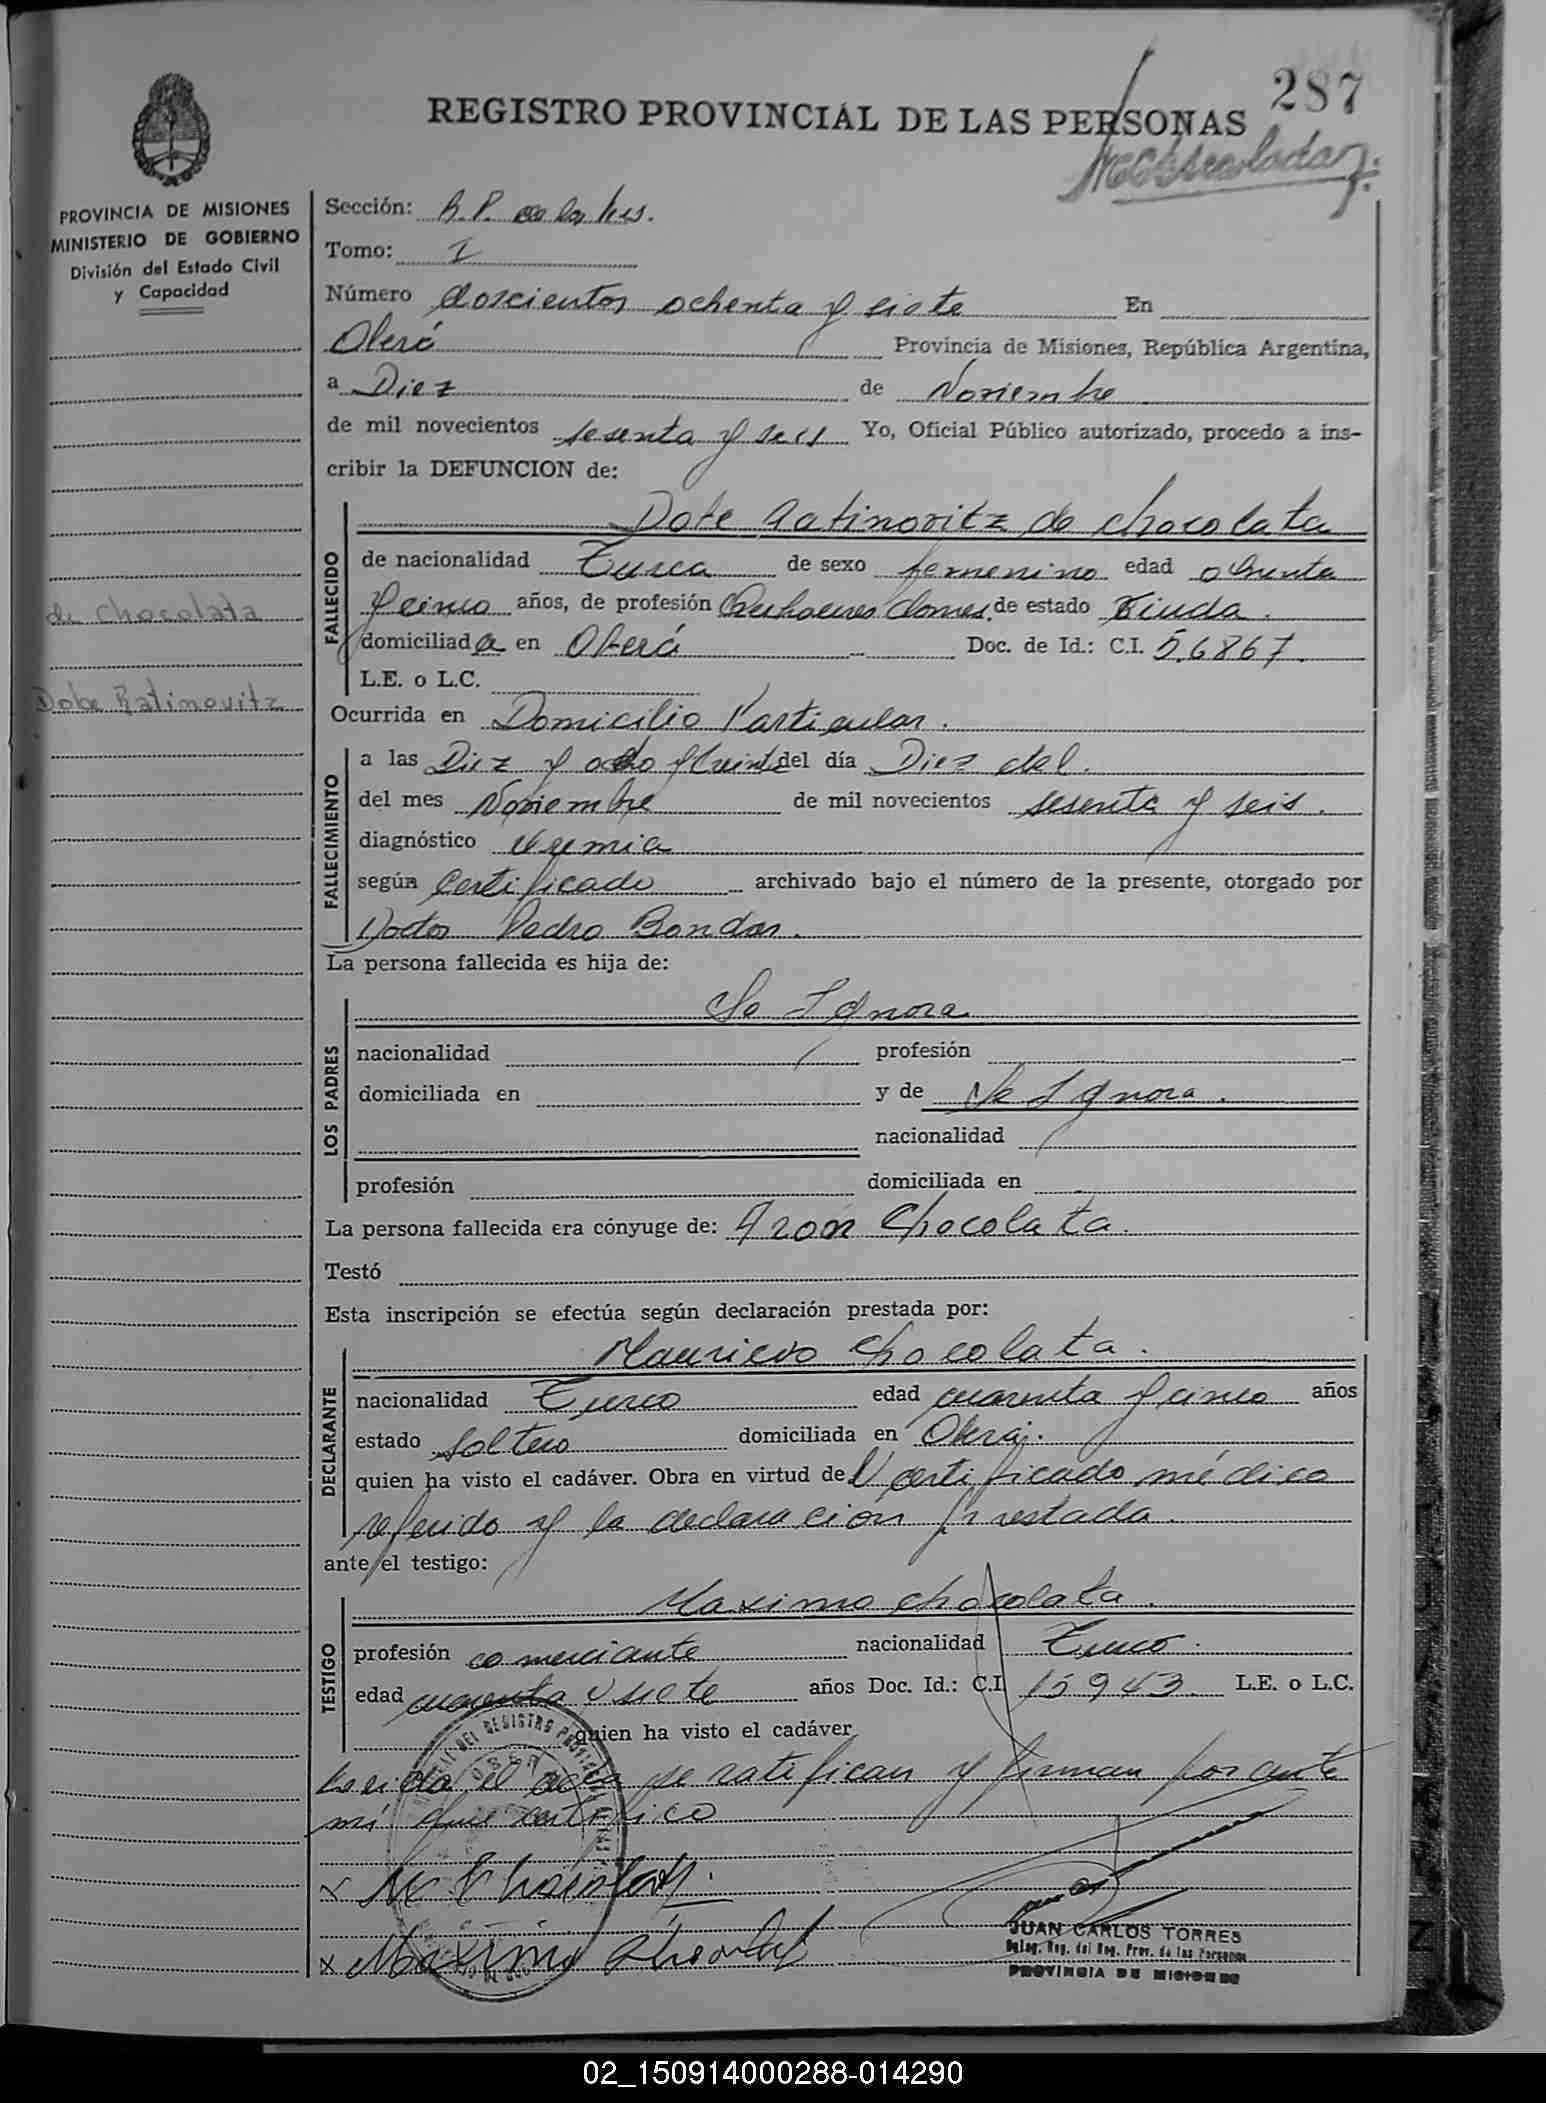 287
REGISTRO PROVINCIAL DE LAS PERSONAS
PROVINCIA DE MISIONES
MINISTERIO DE GOBIERNO
División del Estado Civil
y Capacidad
de Chocolata
Dobe Ratinovitz
Sección: R.P. de las Pers.
Tomo: I
Número doscientos ochenta y siete En
Oberá Provincia de Misiones, República Argentina,
a Diez de Noviembre
de mil novecientos sesenta y seis Yo, Oficial Público autorizado, procedo a ins-
cribir la DEFUNCION de:
FALLECIDO
Dobe Ratinovitz de Chocolata
de nacionalidad Turca de sexo femenino edad ochenta
y cinco años, de profesión Quehaceres domes. de estado Viuda.
domiciliada en Oberá Doc. de Id.: C.I. 5.6867.
L.E. o L.C.
Ocurrida en Domicilio Particular.
FALLECIMIENTO
a las Diez y ocho y treinta del día Diez del.
del mes Noviembre de mil novecientos sesenta y seis.
diagnóstico Uremia
según Certificado archivado bajo el número de la presente, otorgado por
Doctor Pedro Bondar.
La persona fallecida es hija de:
LOS PADRES
Se Ignora
nacionalidad profesión
domiciliada en y de Se Ignora.
nacionalidad
profesión domiciliada en
La persona fallecida era cónyuge de: Aron Chocolata.
Testó
Esta inscripción se efectúa según declaración prestada por:
DECLARANTE
Mauricio Chocolata.
nacionalidad Turco edad cuarenta y cinco años
estado Soltero domiciliada en Oberá.
quien ha visto el cadáver. Obra en virtud del certificado médico
referido y la declaración prestada.
ante el testigo:
TESTIGO
Maximo Chocolata.
profesión comerciante nacionalidad Turco.
edad cuarenta y siete años Doc. Id.: C.I. 15943. L.E. o L.C.
quien ha visto el cadáver
Leida el acta se ratifican y firman por ante
mí que certifico
JUAN CARLOS TORRES
Deleg. Reg. del Reg. Prov. de las Personas
PROVINCIA DE MISIONES
02_150914000288-014290